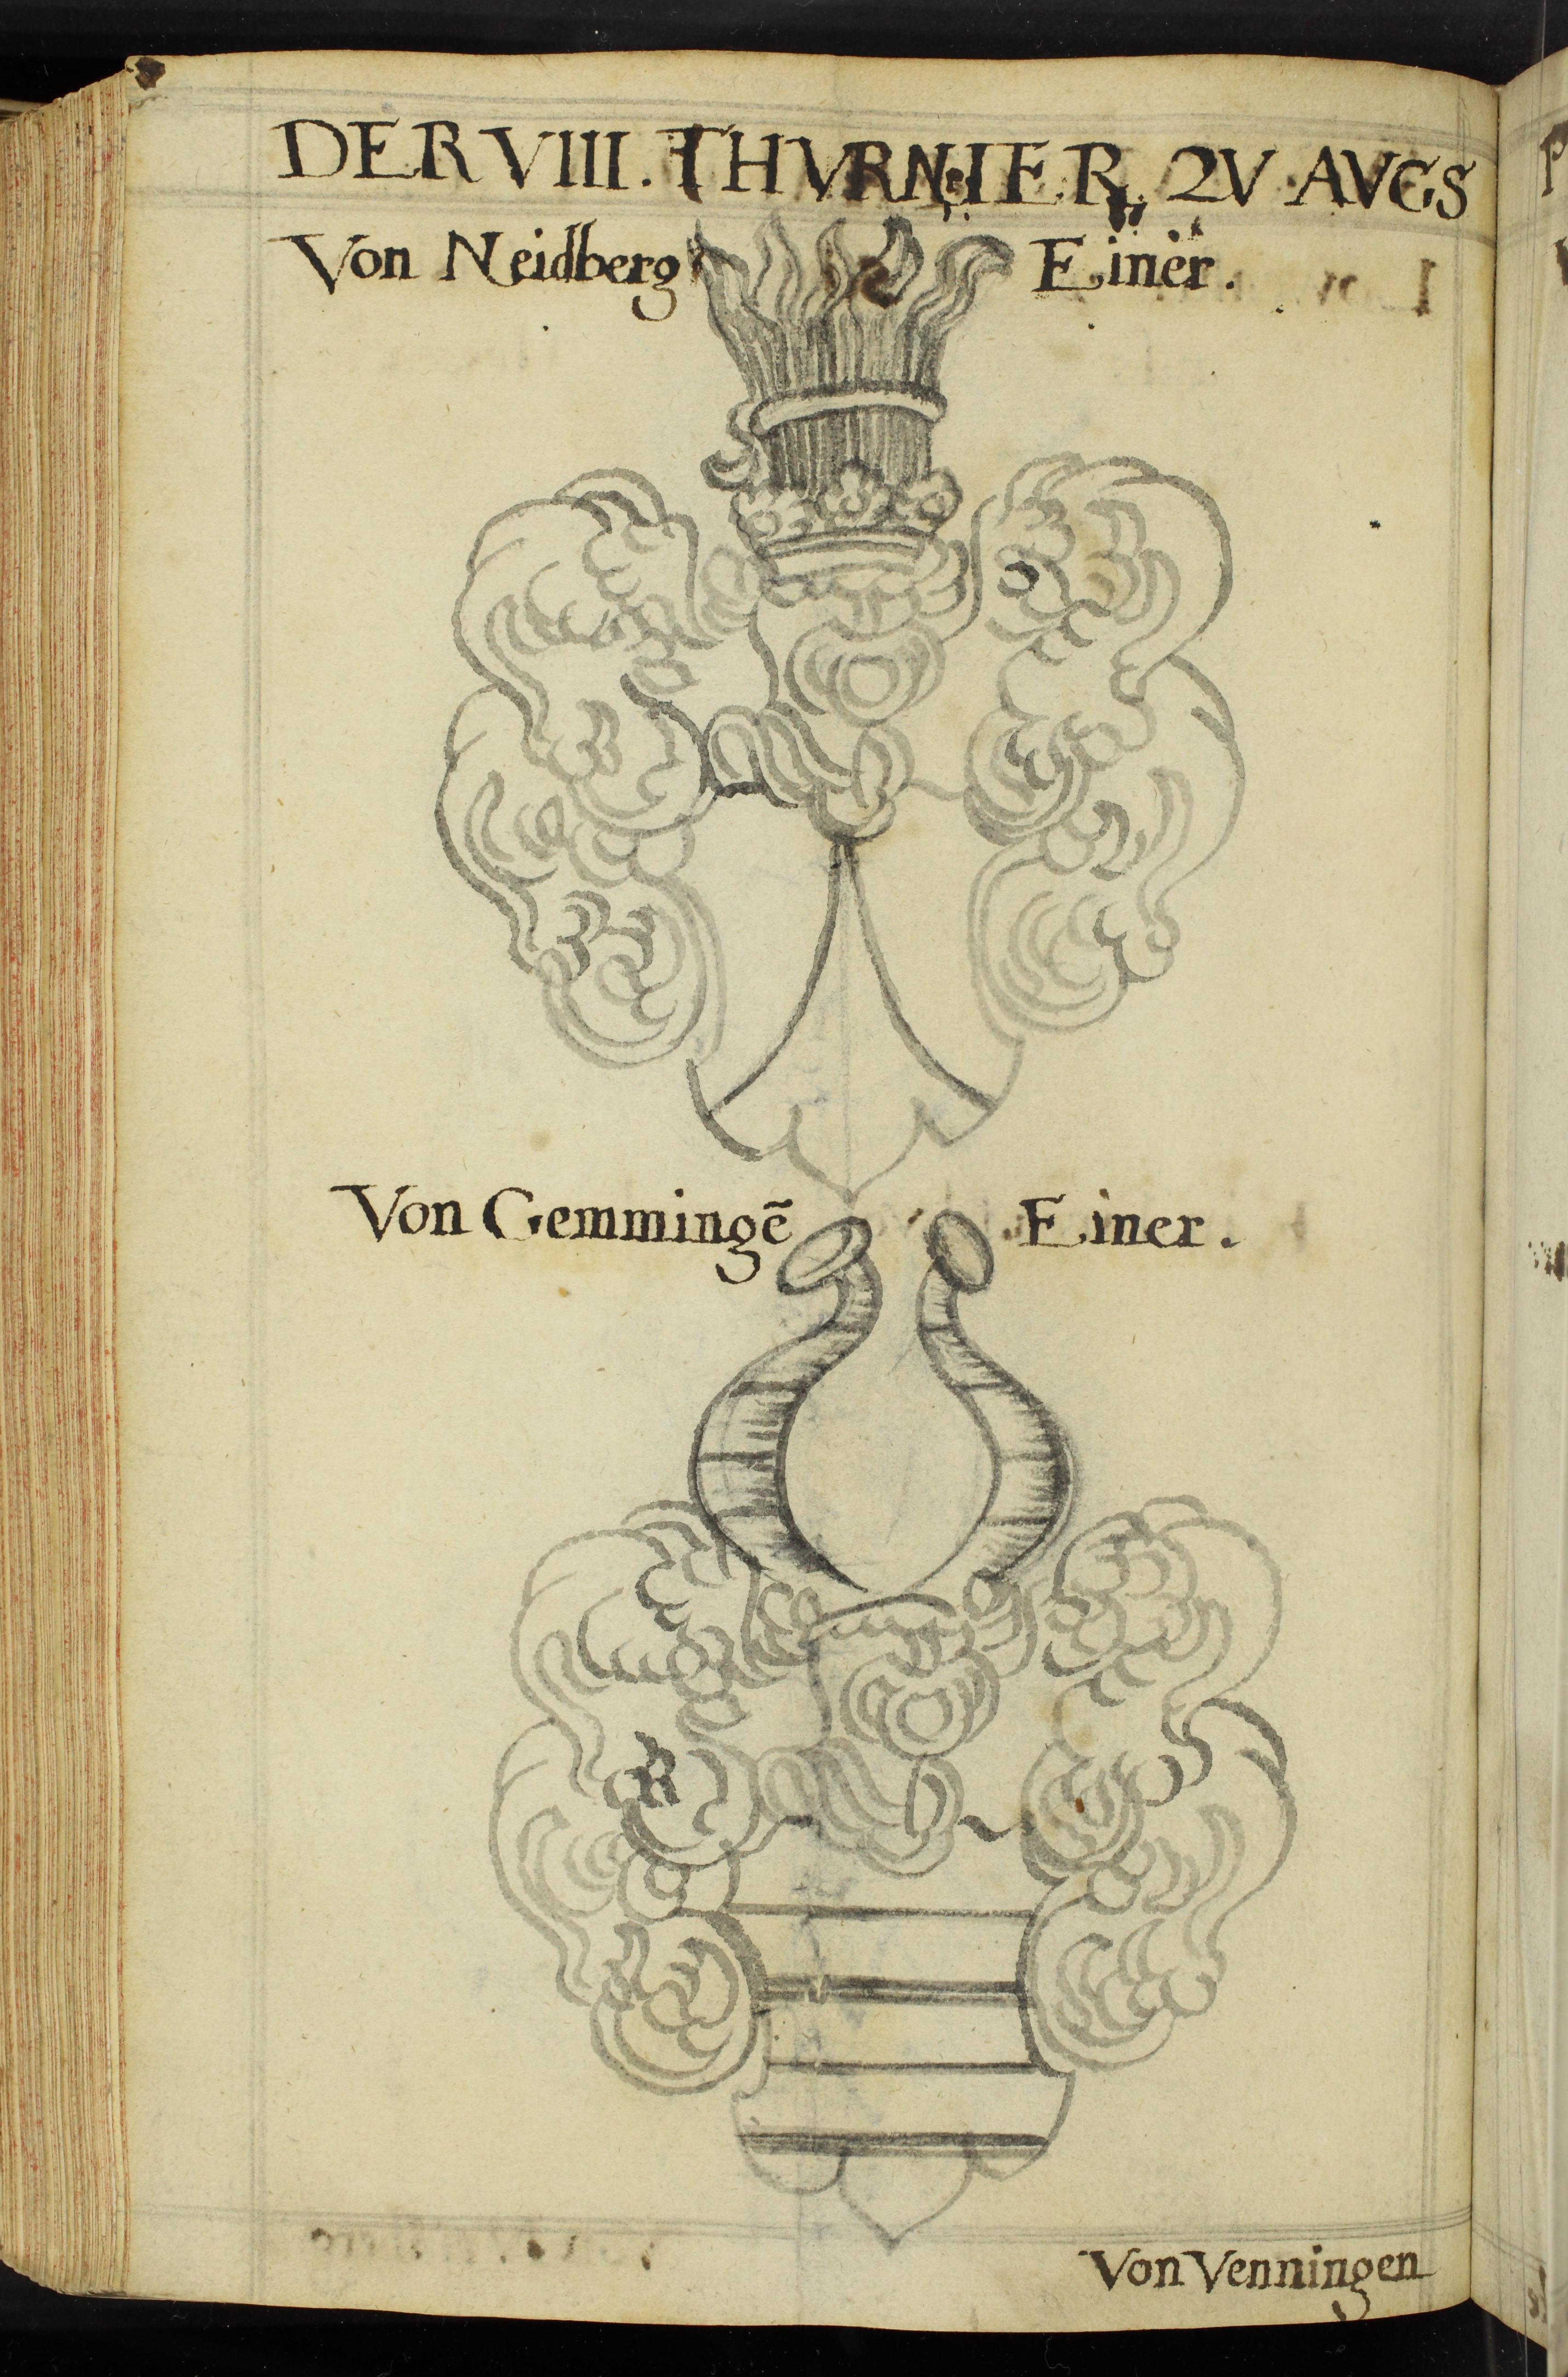 DER VIII. THVRNIER, ZV AVGS
Von Neidberg Einer.
Von Gemmingē Einer.
Von Venningen